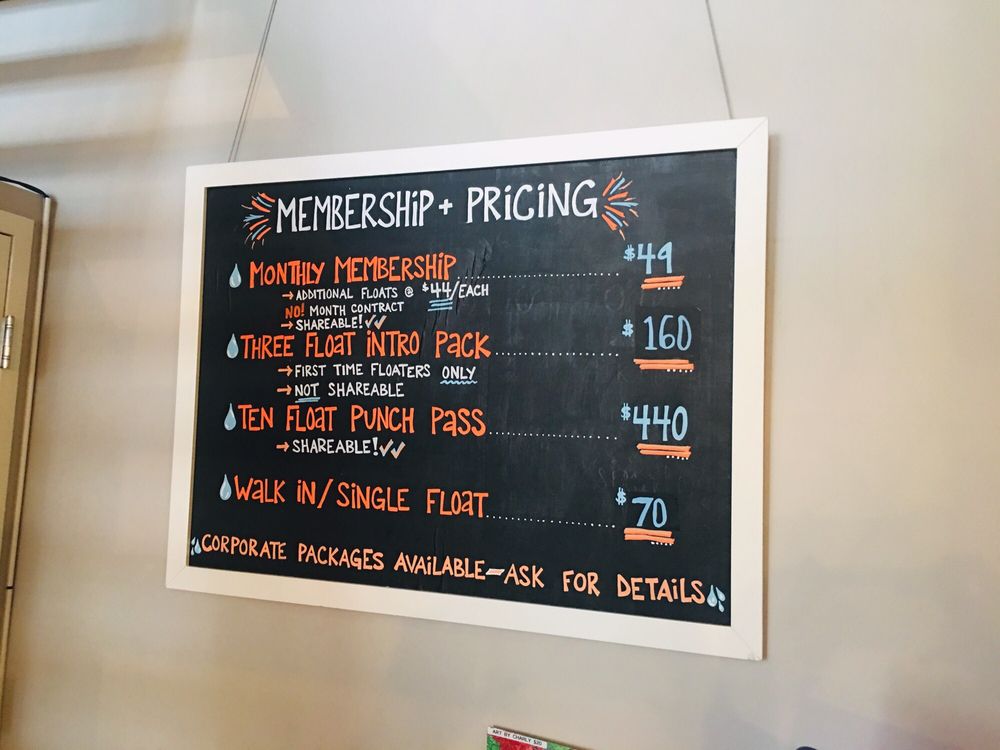 MEMBERSHiP + PRiCiNG
MONTHLY MEMBERSHiP.......................... $49
→ ADDITIONAL FLOATS @ $44/EACH
NO! MONTH CONTRACT
→ SHAREABLE! ✓✓
THREE FLOAT iNTRO PACK.................... $160
→ FIRST TIME FLOATERS ONLY
→ NOT SHAREABLE
TEN FLOAT PUNCH PASS.................... $440
→ SHAREABLE! ✓✓
WALK iN/SiNGLE FLOAT.................... $70
CORPORATE PACKAGES AVAiLABLE—ASK FOR DETAiLS
ART BY CHARLY $20